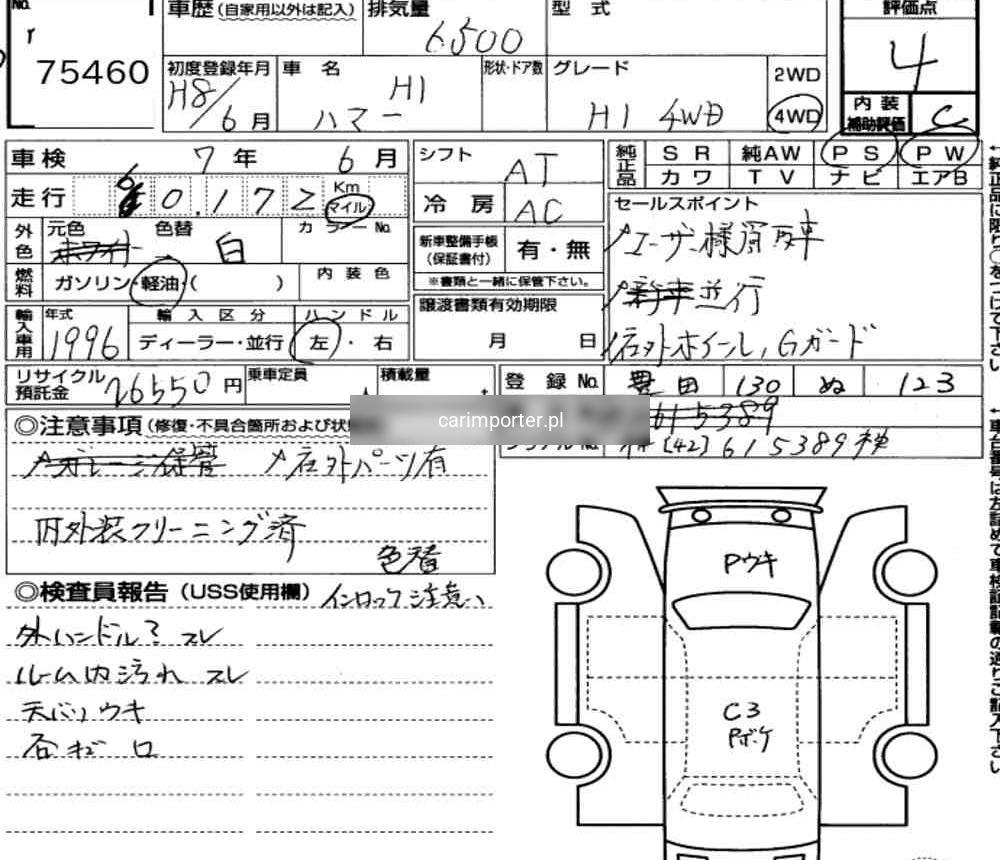 No.
75460
車歴(自家用以外は記入) 排気量 型式
6500
評価点
4
初度登録年月 車名 形状・ドア数 グレード
H8/6月 ハマー H1 H1 4WD
2WD
4WD
内装補助評価 C
車検 7年 6月
シフト AT
純正品 SR 純AW PS PW
カワ TV ナビ エアB
走行 60.172 Km マイル
冷房 AC
セールスポイント
外色 元色 色替 カラーNo.
白
新車整備手帳(保証書付) 有・無
※書類と一緒に保管下さい。
ユーザー様買取車
燃料 ガソリン・軽油・( ) 内装色
新車並行
譲渡書類有効期限
月 日
輸入車用 年式 輸入区分 ハンドル
1996 ディーラー・並行 左・右
社外ホイール, Gガード
リサイクル預託金 26550円 乗車定員 人 積載量
登録No. 豊田 130 ぬ 123
615389
carimporter.pl
[42] 615389
◎注意事項(修復・不具合箇所および状
ガレージ保管 社外パーツ有
内外装クリーニング済
色替
◎検査員報告(USS使用欄) インロック注意
外ハンドル? スレ
ルーム内汚れ スレ
天バリウキ
Pウキ
C3
Pボケ